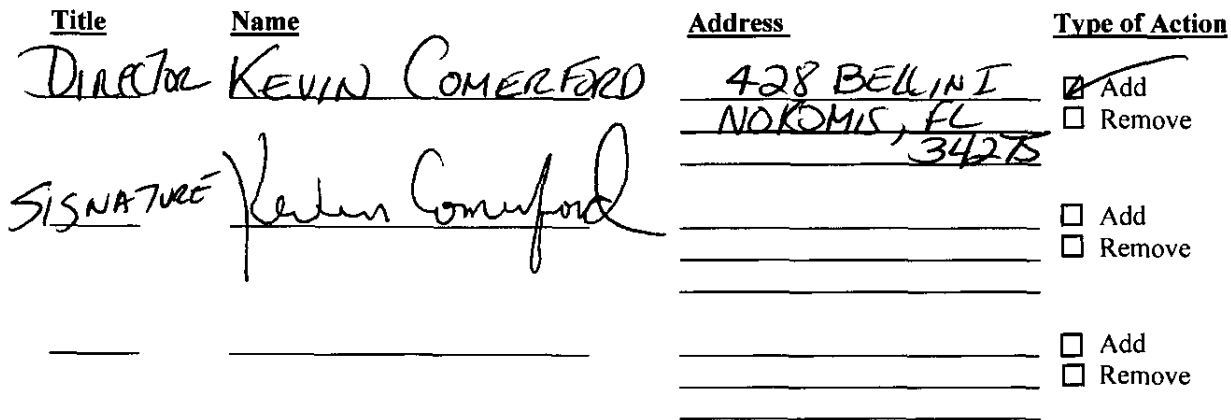 Title Name Address Type of Action
DIRECTOR KEVIN COMERFORD 428 BELLINI ☑ Add
NOKOMIS, FL ☐ Remove
34275
SIGNATURE Kevin Comerford ☐ Add
☐ Remove
☐ Add
☐ Remove